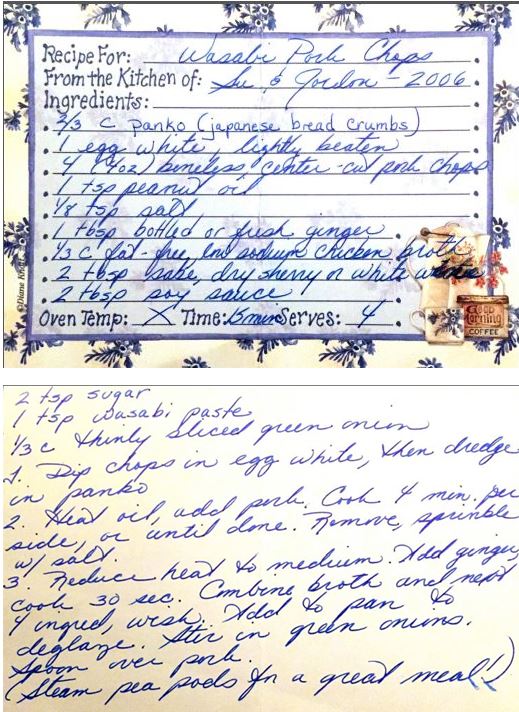 Recipe For: Wasabi Pork Chops
From the Kitchen of: Su & Gordon - 2006
Ingredients:
2/3 c panko (japanese bread crumbs)
1 egg white lightly beaten
4 (4oz) boneless center-cut pork chops
1 tsp peanut oil
1/8 tsp salt
1 tbsp bottled or fresh ginger
1/3 c fat-free, low sodium chicken broth
2 tbsp sake, dry sherry or white
2 tbsp soy sauce
Oven Temp: X Time: 15 min Serves: 4
Good
Morning
COFFEE
2 tsp sugar
1 tsp wasabi paste
1/3 c thinly sliced green onion
1. Dip chops in egg white, then dredge
in panko
2. Heat oil, add pork. Cook 4 min. per
side, or until done. Remove, sprinkle
w/ salt.
3. Reduce heat to medium. Add ginger,
cook 30 sec. Combine broth and next
4 ingred, whisk. Add to pan to
deglaze. Stir in green onions.
Spoon over pork.
(Steam pea pods for a great meal!)